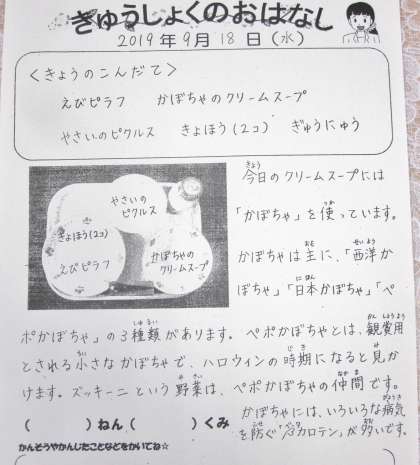 きゅうしょくのおはなし
2019年9月18日(水)
<きょうのこんだて>
えびピラフ かぼちゃのクリームスープ
やさいのピクルス きょほう(2コ) ぎゅうにゅう
やさいのピクルス
きょほう(2コ)
えびピラフ
かぼちゃのクリームスープ
きょう
今日のクリームスープには
つか
「かぼちゃ」を使っています。
おも せいよう
かぼちゃは主に、「西洋か
にほん
ぼちゃ」「日本かぼちゃ」「ペ
しゅるい かんしょうよう
ポかぼちゃ」の3種類があります。ペポかぼちゃとは、観賞用
ちい じき み
とされる小さなかぼちゃで、ハロウィンの時期になると見か
やさい なかま
けます。ズッキーニという野菜は、ペポかぼちゃの仲間です。
びょうき
かぼちゃには、いろいろな病気
ふせ おお
を防ぐ「βカロテン」が多いです。
( )ねん( )くみ
かんそうやかんじたことなどをかいてね☆